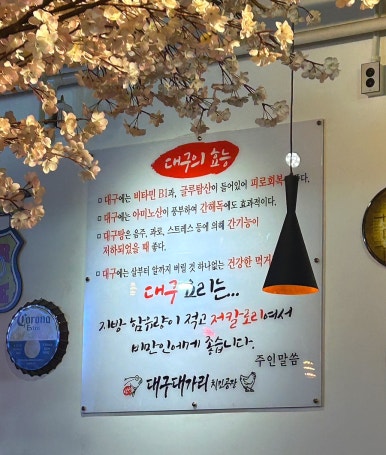 대구의 효능
대구에는 비타민 B1과, 글루탐산이 들어있어 피로회복
대구에는 아미노산이 풍부하여 간해독에도 효과적이다.
대구탕은 음주, 과로, 스트레스 등에 의해 간기능이
저하되었을 때 좋다.
대구에는 살부터 알까지 버릴 것 하나없는 건강한 먹거
대구 요리는...
지방 함유량이 적고 저칼로리여서
비만인에게 좋습니다.
주인말씀
대구대가리 치킨공감
Corona
Extra